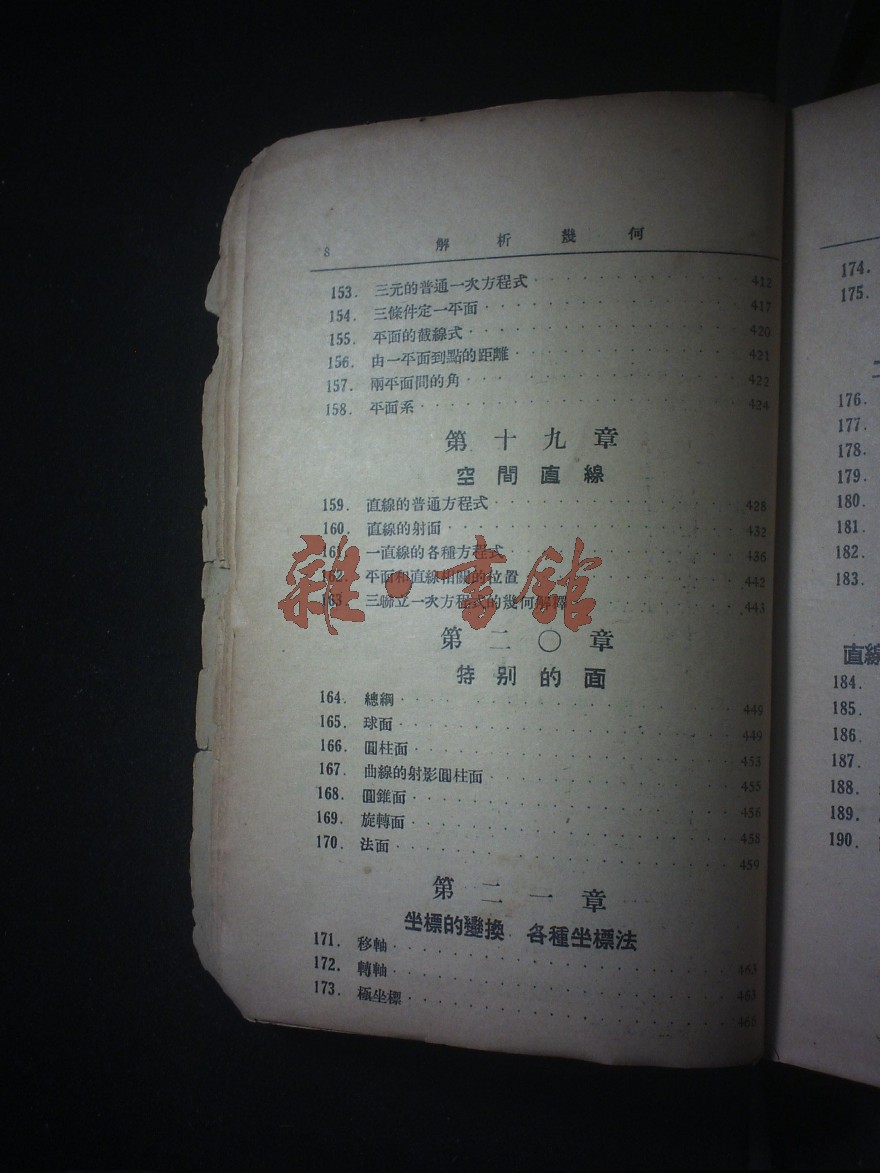 8 解析幾何
153. 三元的普通一次方程式 412
154. 三條件定一平面 417
155. 平面的截線式 420
156. 由一平面到點的距離 421
157. 兩平面間的角 422
158. 平面系 424
第十九章
空間直線
159. 直線的普通方程式 428
160. 直線的射面 432
161. 一直線的各種方程式 436
162. 平面和直線相關的位置 442
163. 三聯立一次方程式的幾何解釋 443
雜·書館
第二〇章
特別的面
164. 總綱 449
165. 球面 449
166. 圓柱面 453
167. 曲線的射影圓柱面 455
168. 圓錐面 456
169. 旋轉面 458
170. 法面 459
第二一章
坐標的變換 各種坐標法
171. 移軸 463
172. 轉軸 463
173. 極坐標 466
174.
175.
176.
177.
178.
179.
180.
181.
182.
183.
直線
184.
185.
186.
187.
188.
189.
190.